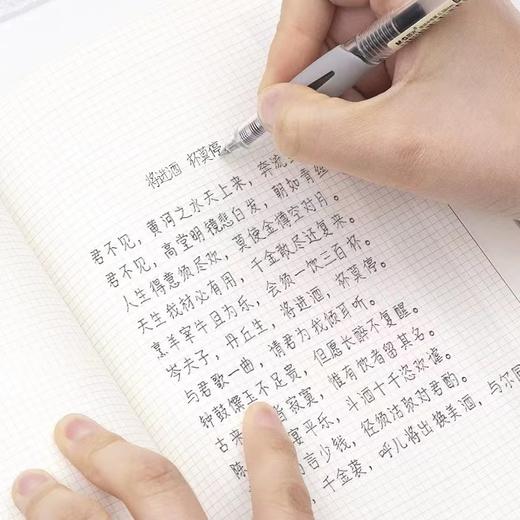 将进酒 杯莫停
君不见，黄河之水天上来，奔流
君不见，高堂明镜悲白发，朝如青丝
人生得意须尽欢，莫使金樽空对月。
天生我材必有用，千金散尽还复来。
烹羊宰牛且为乐，会须一饮三百杯。
岑夫子，丹丘生，将进酒，杯莫停。
与君歌一曲，请君为我倾耳听。
钟鼓馔玉不足贵，但愿长醉不复醒。
古来 寂寞，惟有饮者留其名。
陈 宴平乐，斗酒十千恣欢谑。
言少钱，径须沽取对君酌。
，千金裘，呼儿将出换美酒，与尔同